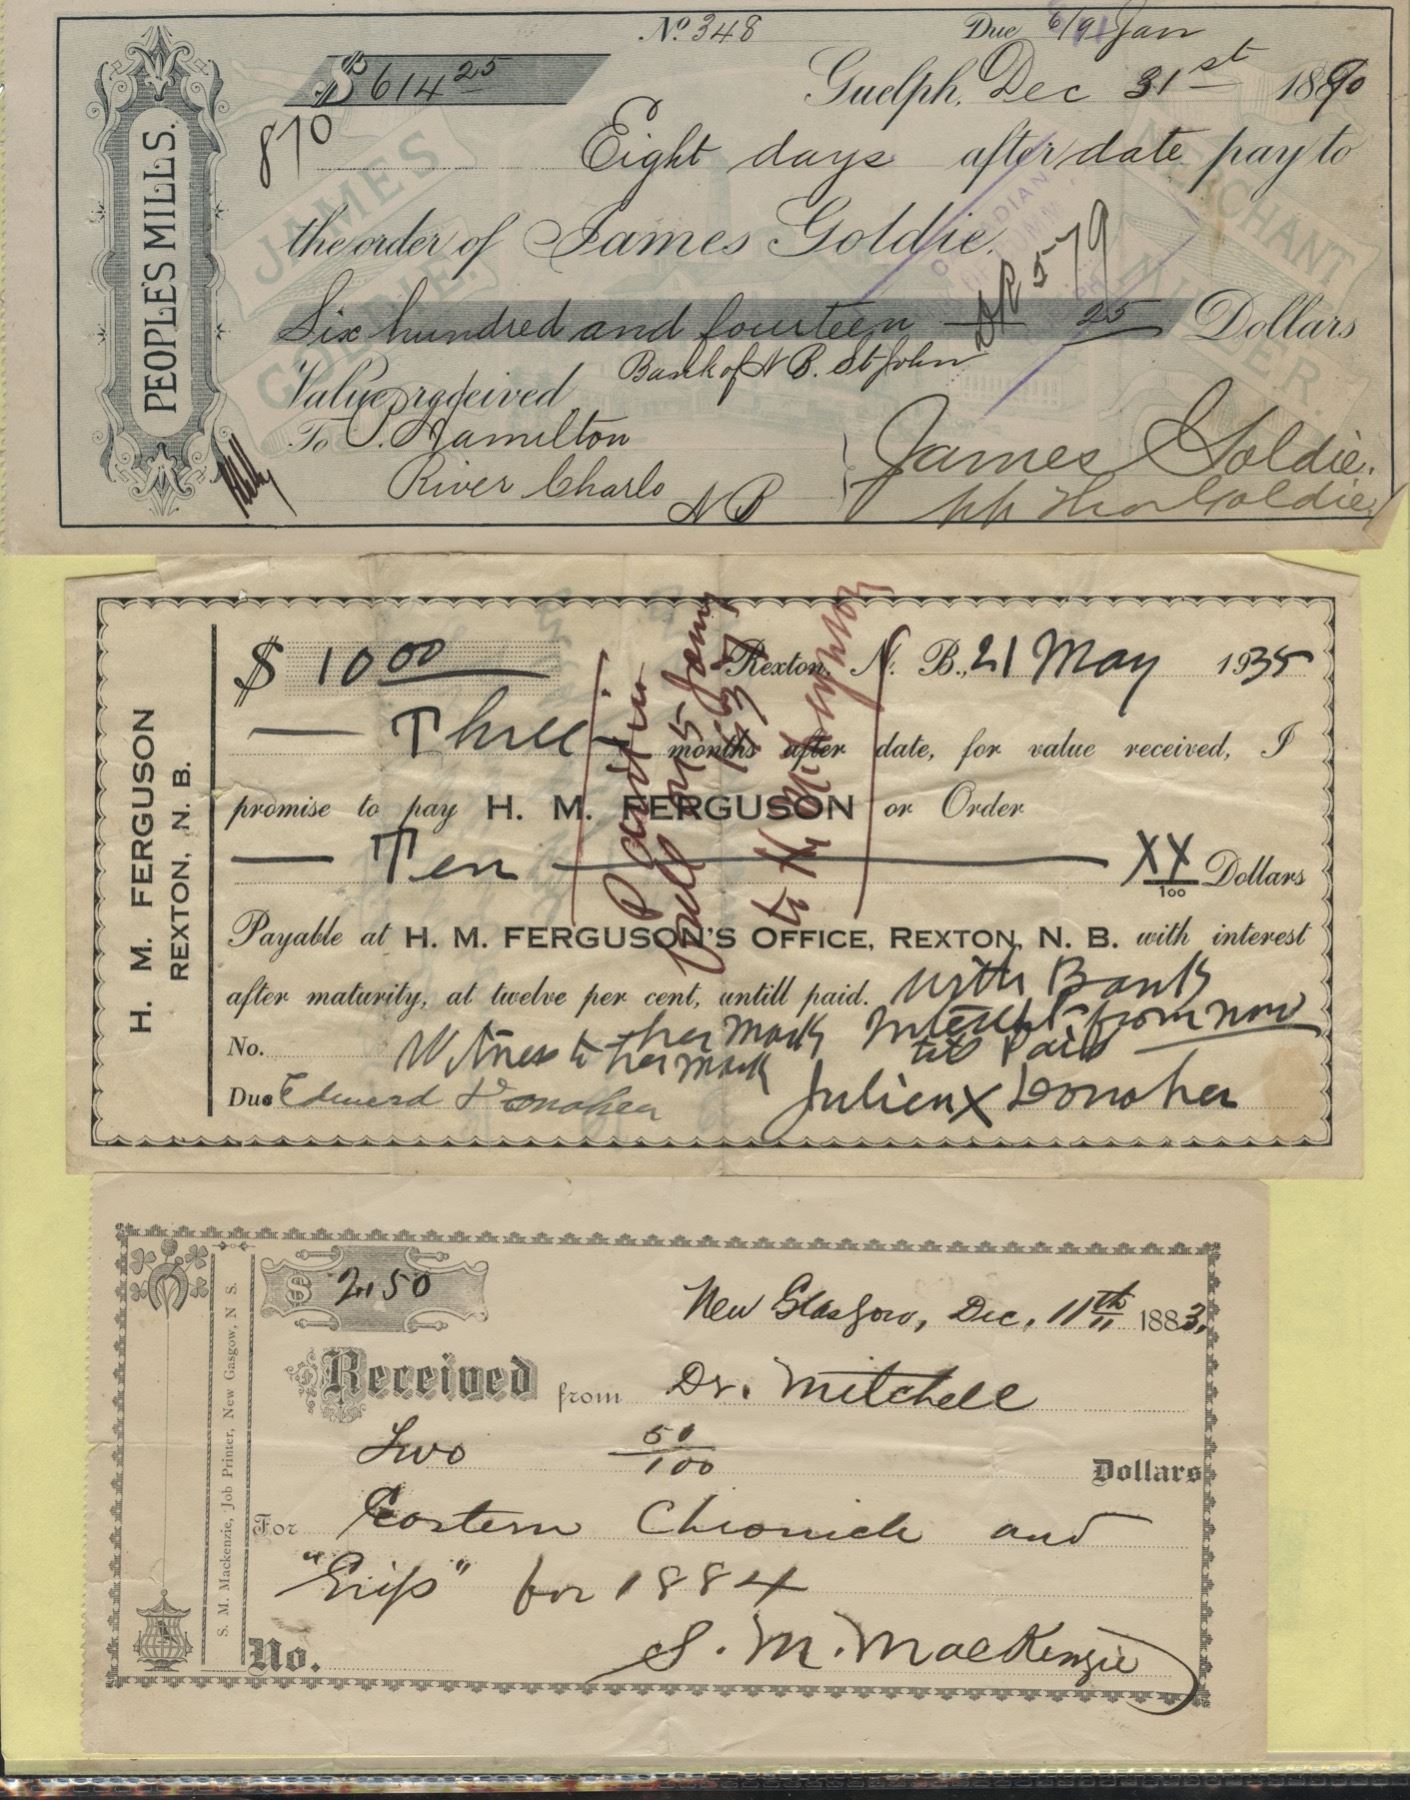 No. 348 Due 6/9 Jan
$614 25 Guelph, Dec 31st 1890
870
Eight days after date pay to
the order of James Goldie.
Six hundred and fourteen 25 Dollars
DR 579
Bank of N B. St John
Value received
To P. Hamilton
River Charlo
N B
James Goldie.
pp Thos Goldie
PEOPLE'S MILLS.
JAMES GOLDIE.
MERCHANT MILLER.
H. M. FERGUSON
REXTON, N. B.
$ 10 00 Rexton, N. B., 21 May 1935
Three months after date, for value received, I
promise to pay H. M. FERGUSON or Order
Ten XX/100 Dollars
Payable at H. M. FERGUSON'S OFFICE, REXTON, N. B. with interest
after maturity, at twelve per cent, untill paid. with Bank
Interest from now
till Paid
No.
her mark
Witness to her mark
Due Edward Donaher
Julien X Donaher
Paid in
full
S. M. Mackenzie, Job Printer, New Gasgow, N S.
$ 2.50
New Glasgow, Dec. 11th 1883.
Received from Dr. Mitchell
Two 50/100 Dollars
For Eastern Chronicle and
"Grip" for 1884
No.
S. M. MacKenzie